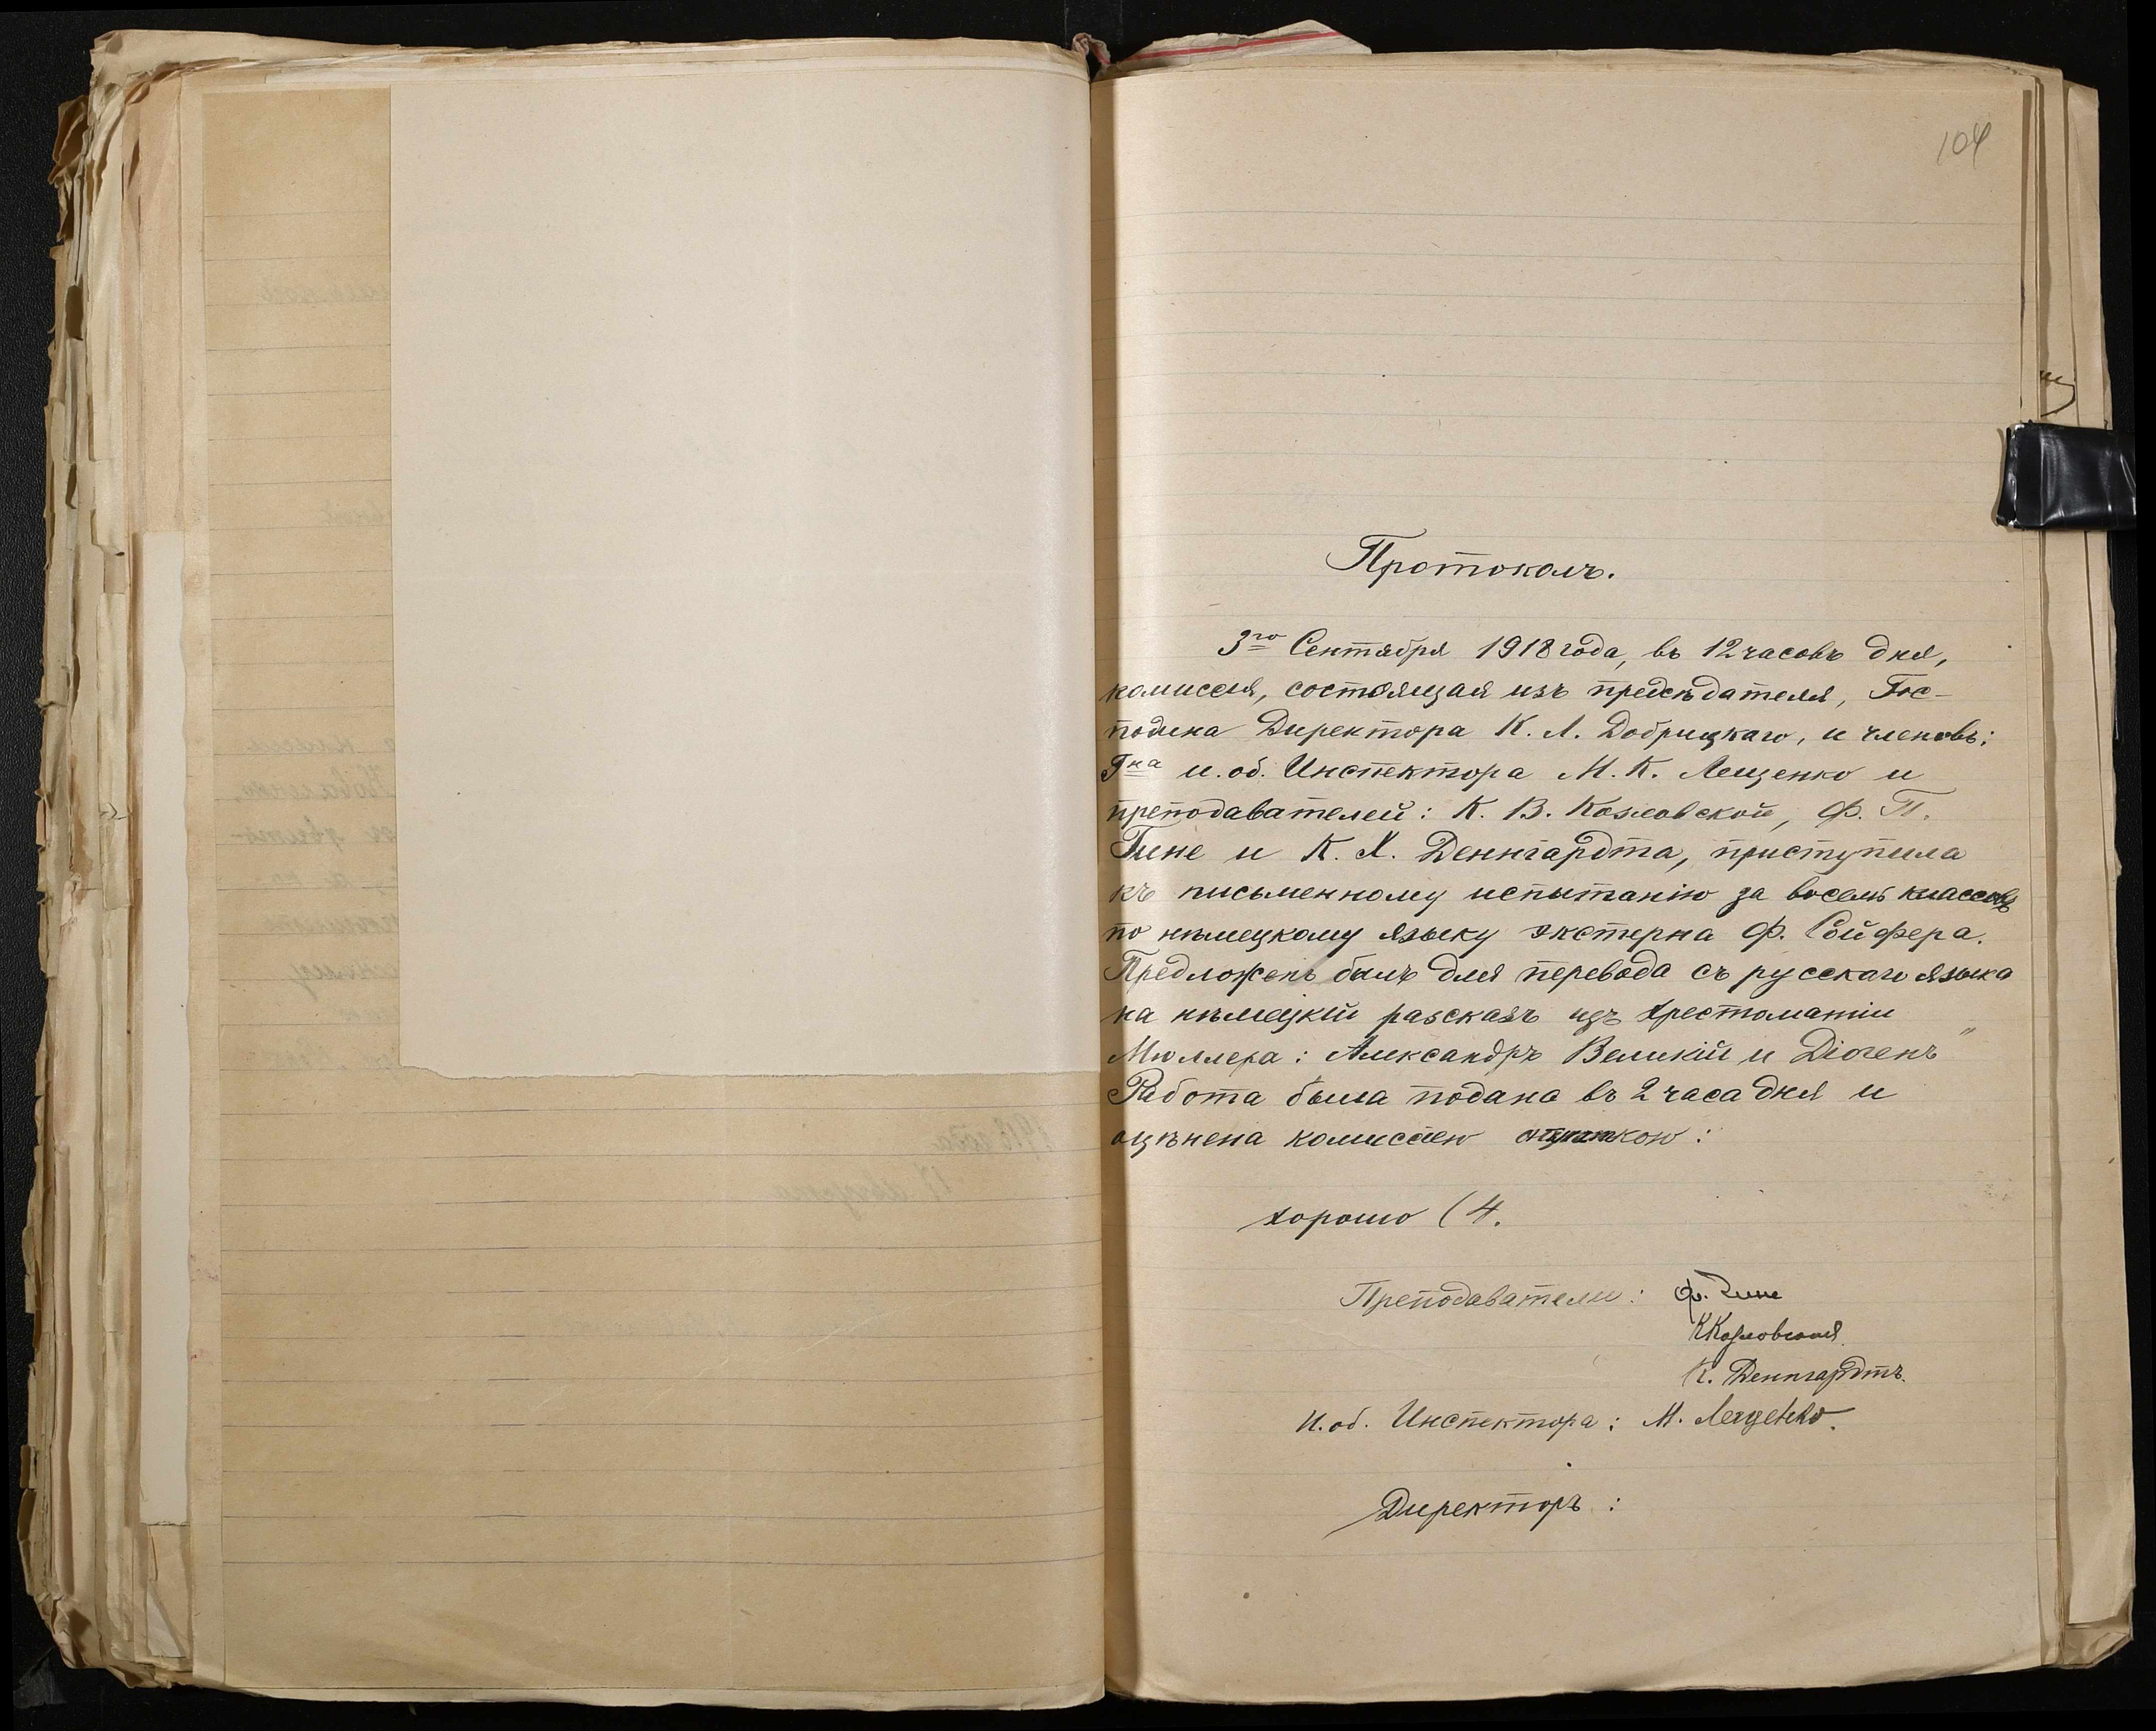 104
Протоколъ.
3го Сентября 1918 года, въ 12 часовъ дня,
комиссія, состоящая изъ предсѣдателя, Гос-
подина Директора К. Л. Добрицкаго, и членовъ:
Гна и. об. Инспектора М. К. Лещенко и
преподавателей: К. В. Козловской, Ф. П.
Гине и К. Х. Деннгардта, приступила
къ письменному испытанію за восемь классовъ
по нѣмецкому языку экстерна Ф. Сойфера.
Предложенъ былъ для перевода съ русскаго языка
на нѣмецкій разсказъ изъ хрестоматіи
Мюллера: Александръ Великій и Діогенъ"
Работа была подана въ 2 часа дня и
оцѣнена комиссіею
хорошо (4.
Преподаватели: Ф. Гине
ККозловская.
К. Деннгардтъ.
И. об. Инспектора: М. Лещенко.
Директоръ:
1918 года